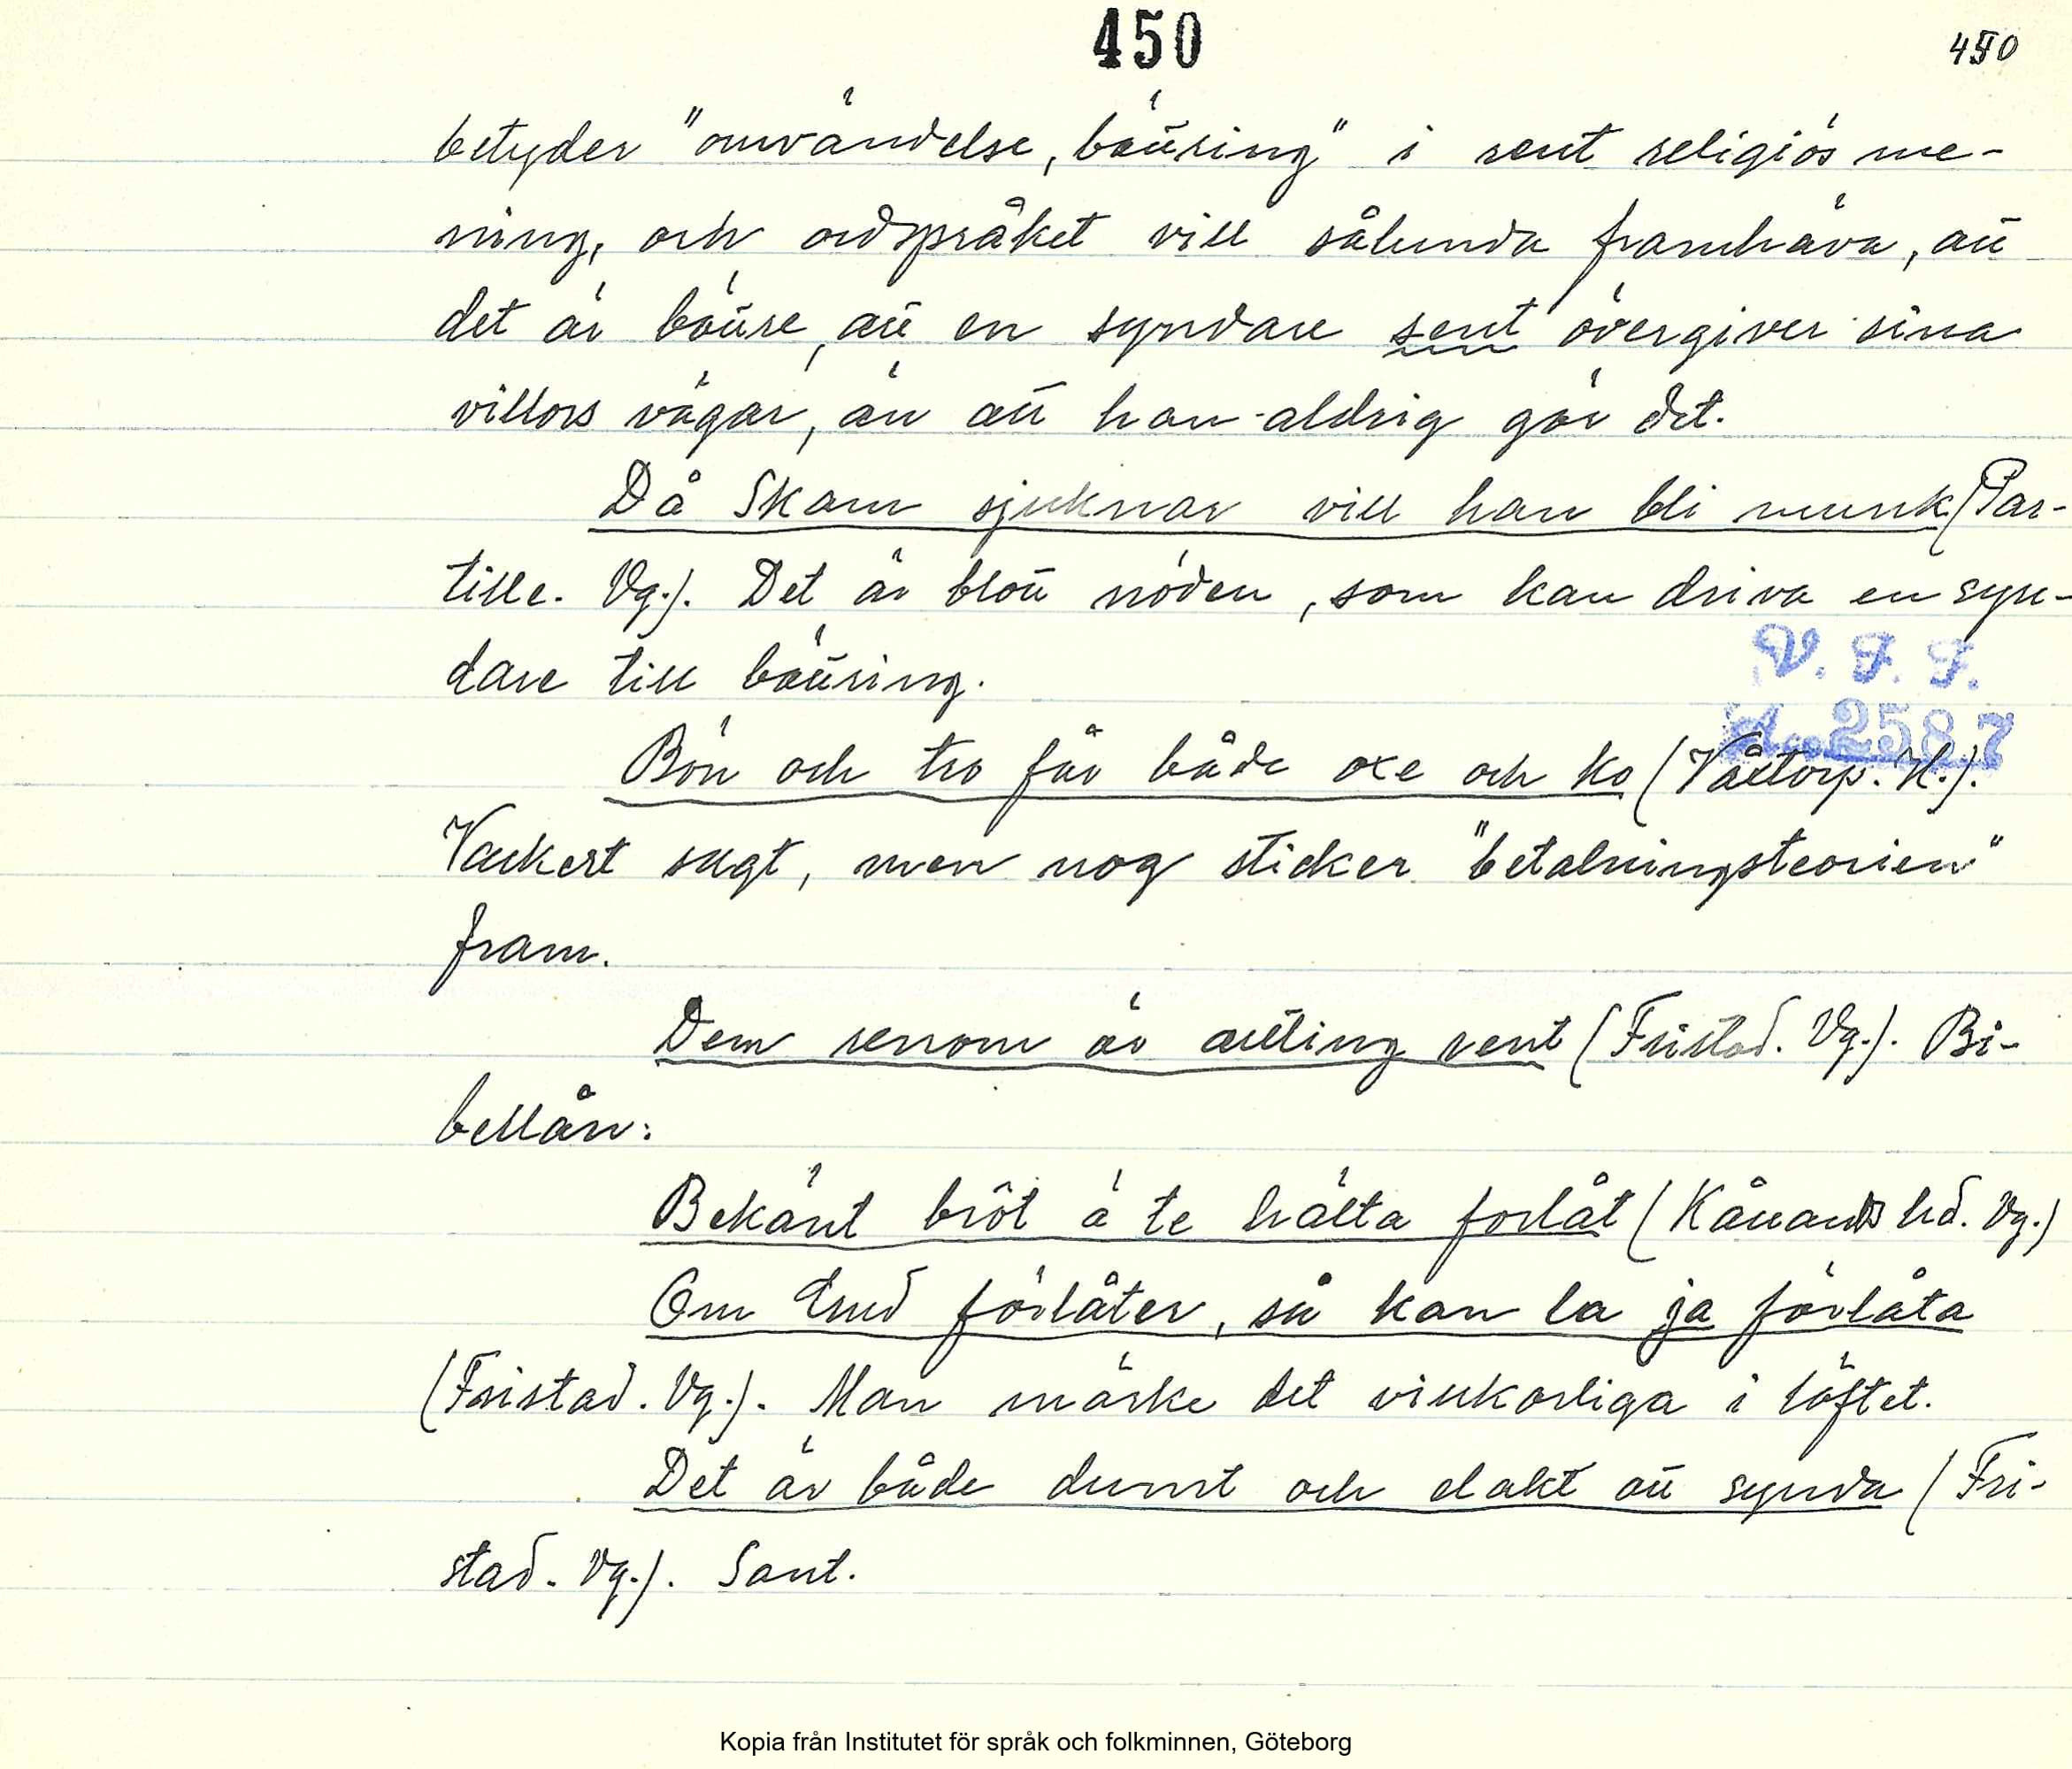 450
450
betyder "omvändelse, bättring" i rent religiös me-
ning, och ordspråket vill sålunda framhäva, att
det är bättre, att en syndare sent övergiver sina
villors vägar, än att han aldrig gör det.
Då Skam sjuknar vill han bli munk (Par-
tille. Vg.). Det är blott nöden, som kan driva en syn-
dare till bättring.
V. F. F.
Acc 2587
Bön och tro får både oxe och ko (Våxtorp. H.).
Vackert sagt, men nog sticker "betalningsteorien"
fram.
Dem renom är allting rent (Fristad. Vg.). Bi-
bellån.
Bekänt bröt ä te hälta forlåt (Kåkinds hd. Vg.)
Om Gud förlåter, så kan la ja förlåta
(Fristad. Vg.). Man märke det vilkorliga i löftet.
Det är både dumt och elakt att synda (Fri-
stad. Vg.). Sant.
Kopia från Institutet för språk och folkminnen, Göteborg